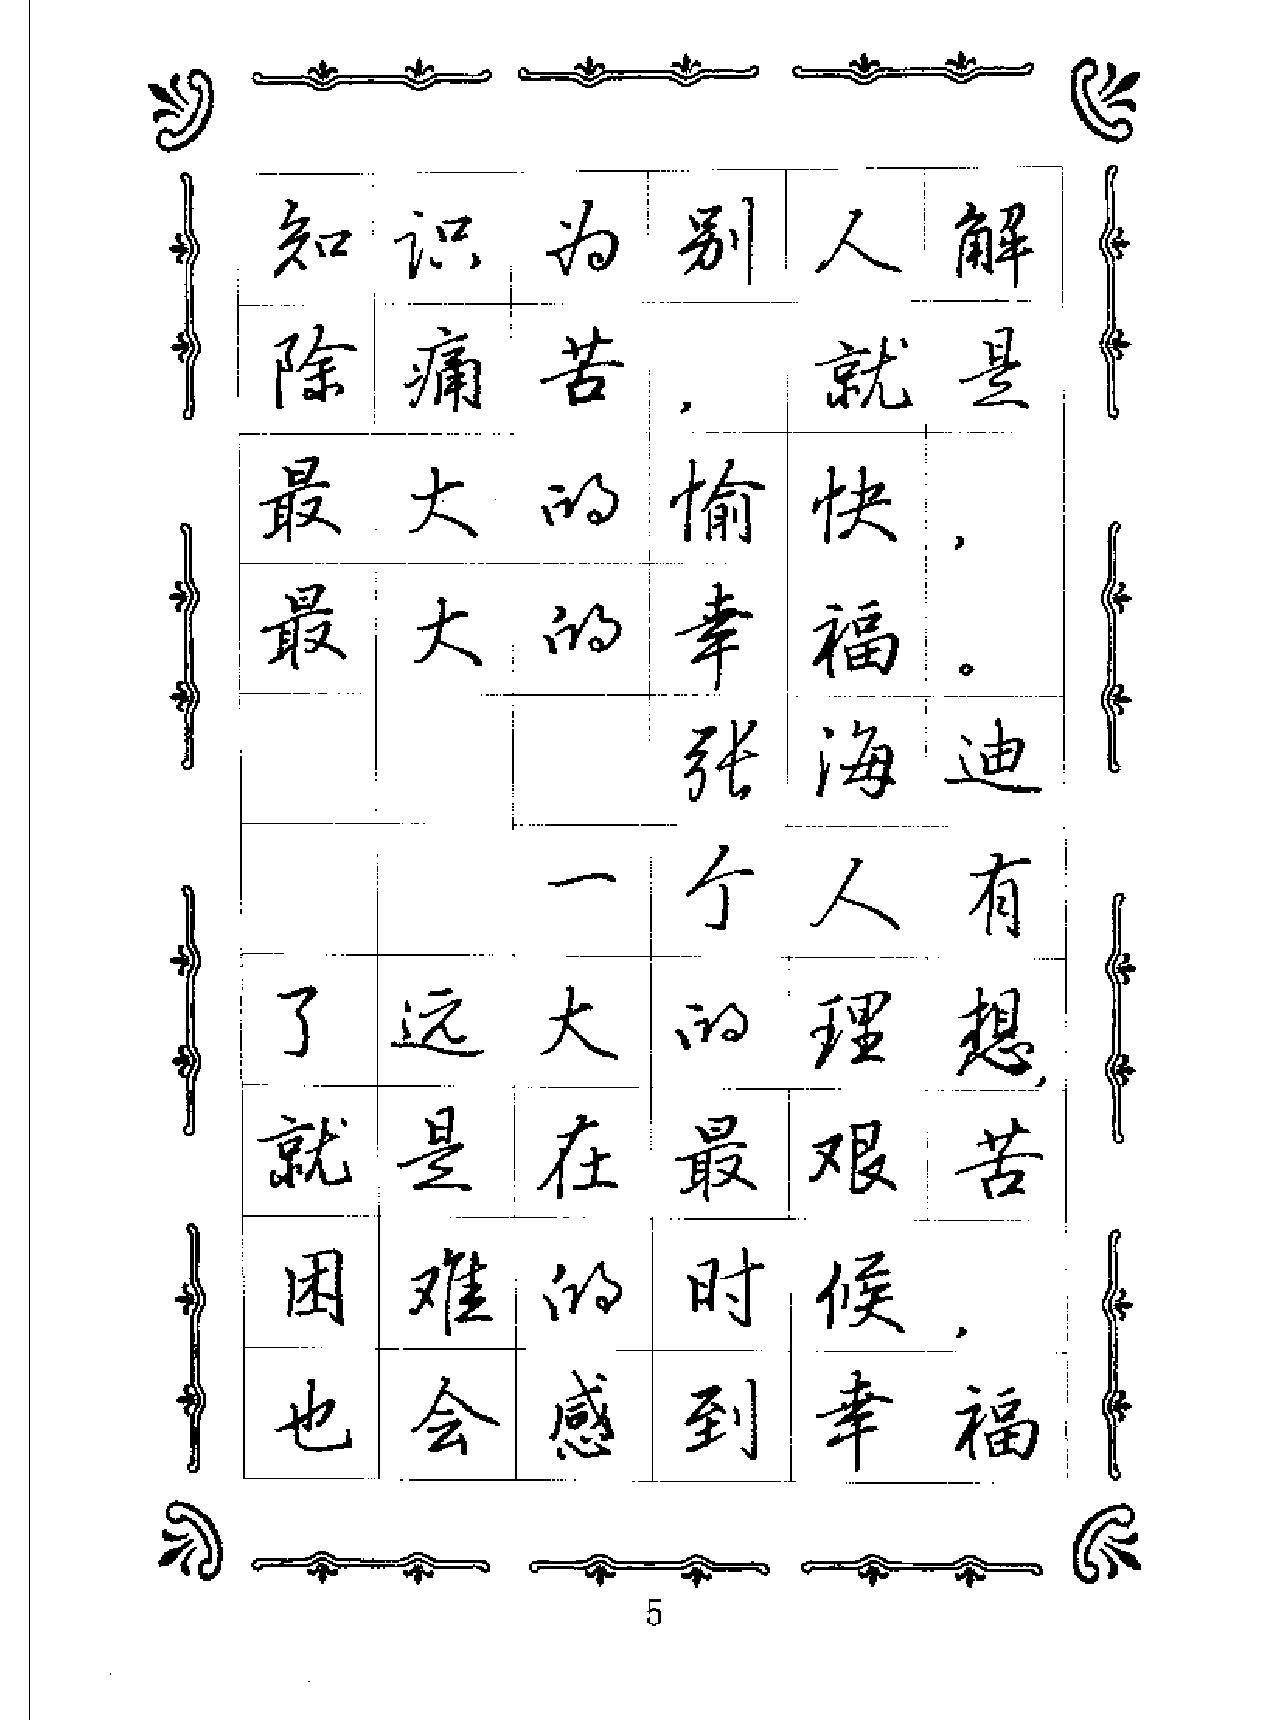 知识为别人解
除痛苦，就是
最大的愉快，
最大的幸福。
张海迪
一个人有
了远大的理想，
就是在最艰苦
困难的时候，
也会感到幸福
5